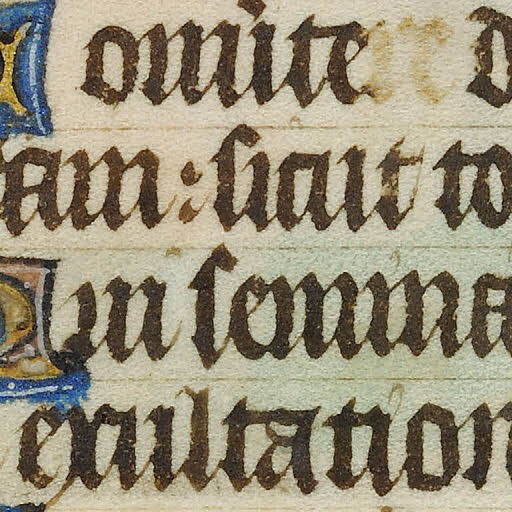 onu̾te d
am : sicut to
ui semina
exultation